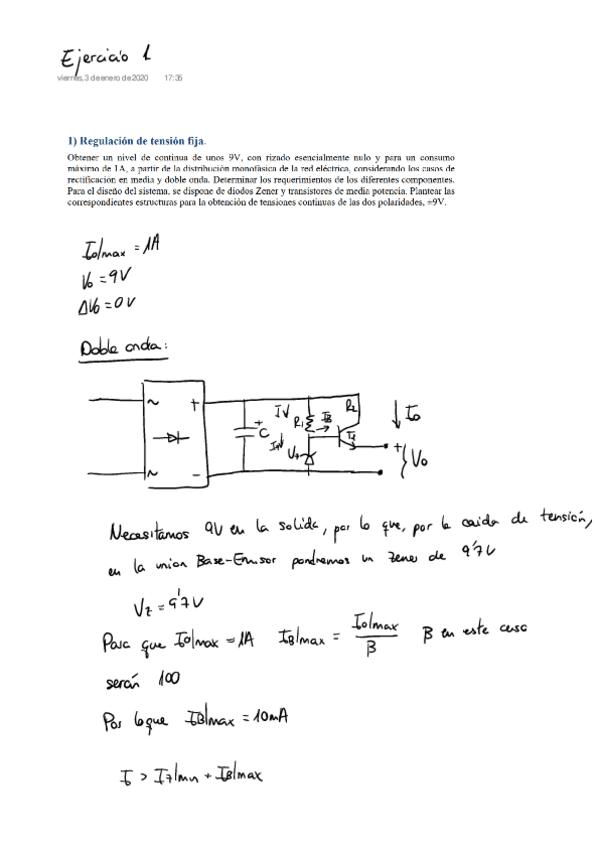 Ejercicio 1
viernes, 3 de enero de 2020 17:35
1) Regulación de tensión fija.
Obtener un nivel de continua de unos 9V, con rizado esencialmente nulo y para un consumo
máximo de 1A, a partir de la distribución monofásica de la red eléctrica, considerando los casos de
rectificación en media y doble onda. Determinar los requerimientos de los diferentes componentes.
Para el diseño del sistema, se dispone de diodos Zener y transistores de media potencia. Plantear las
correspondientes estructuras para la obtención de tensiones continuas de las dos polaridades, ±9V.
Io|max = 1A
Vo = 9V
ΔVo = 0V
Doble onda:
~ + I R1 IB R2 Io
+ C + Vo
~ -
Necesitamos 9V en la salida, por lo que, por la caida de tensión,
en la union Base-Emisor pondremos un zener de 9'7V
Vz = 9'7V
Para que Io|max = 1A IB|max = Io|max / β β en este caso
serán 100
Por lo que IB|max = 10mA
> Iz|min + IB|max